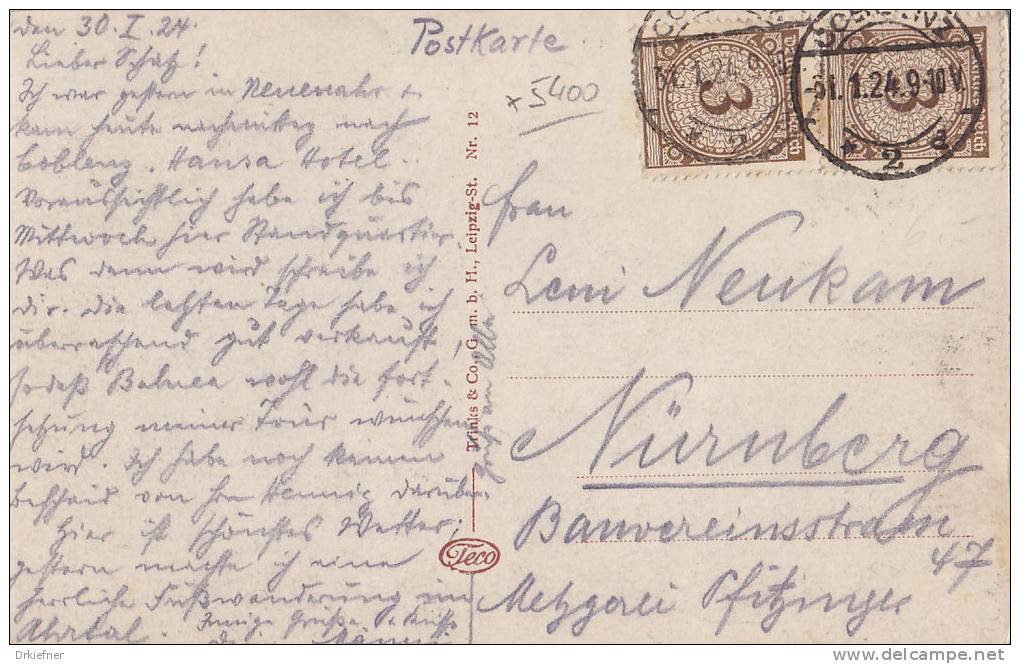 den 30. I. 24.
Postkarte
Lieber Schatz!
Ich war gestern in Neuenahr +
kam heute nachmittag nach
Coblenz. Hansa Hotel.
Voraussichtlich habe ich bis
Mittwoch hier Standquartier.
Was dann wird schreibe ich
dir. Die letzten Tage habe ich
überraschend gut verkauft,
sodaß Balnea wohl die Fort-
setzung meiner Tour wünschen
wird. Ich habe noch keinen
bescheid von Hrn Hennig darüber.
Hier ist schönstes Wetter;
gestern machte ich eine
herrliche Fußwanderung im
Ahrtal. Innige Grüße + Küsse
Männe
Grüße an Alle
Trinks & Co., G. m. b. H., Leipzig-St. Nr. 12
Teco
x 5400
3
3
31. 1.24. 9-10 V.
2 a
Frau
Leni Neukam
Nürnberg
Bauvereinsstrasse
47
Metzgerei Pfitzinger
Drkiefner
www.delcampe.net